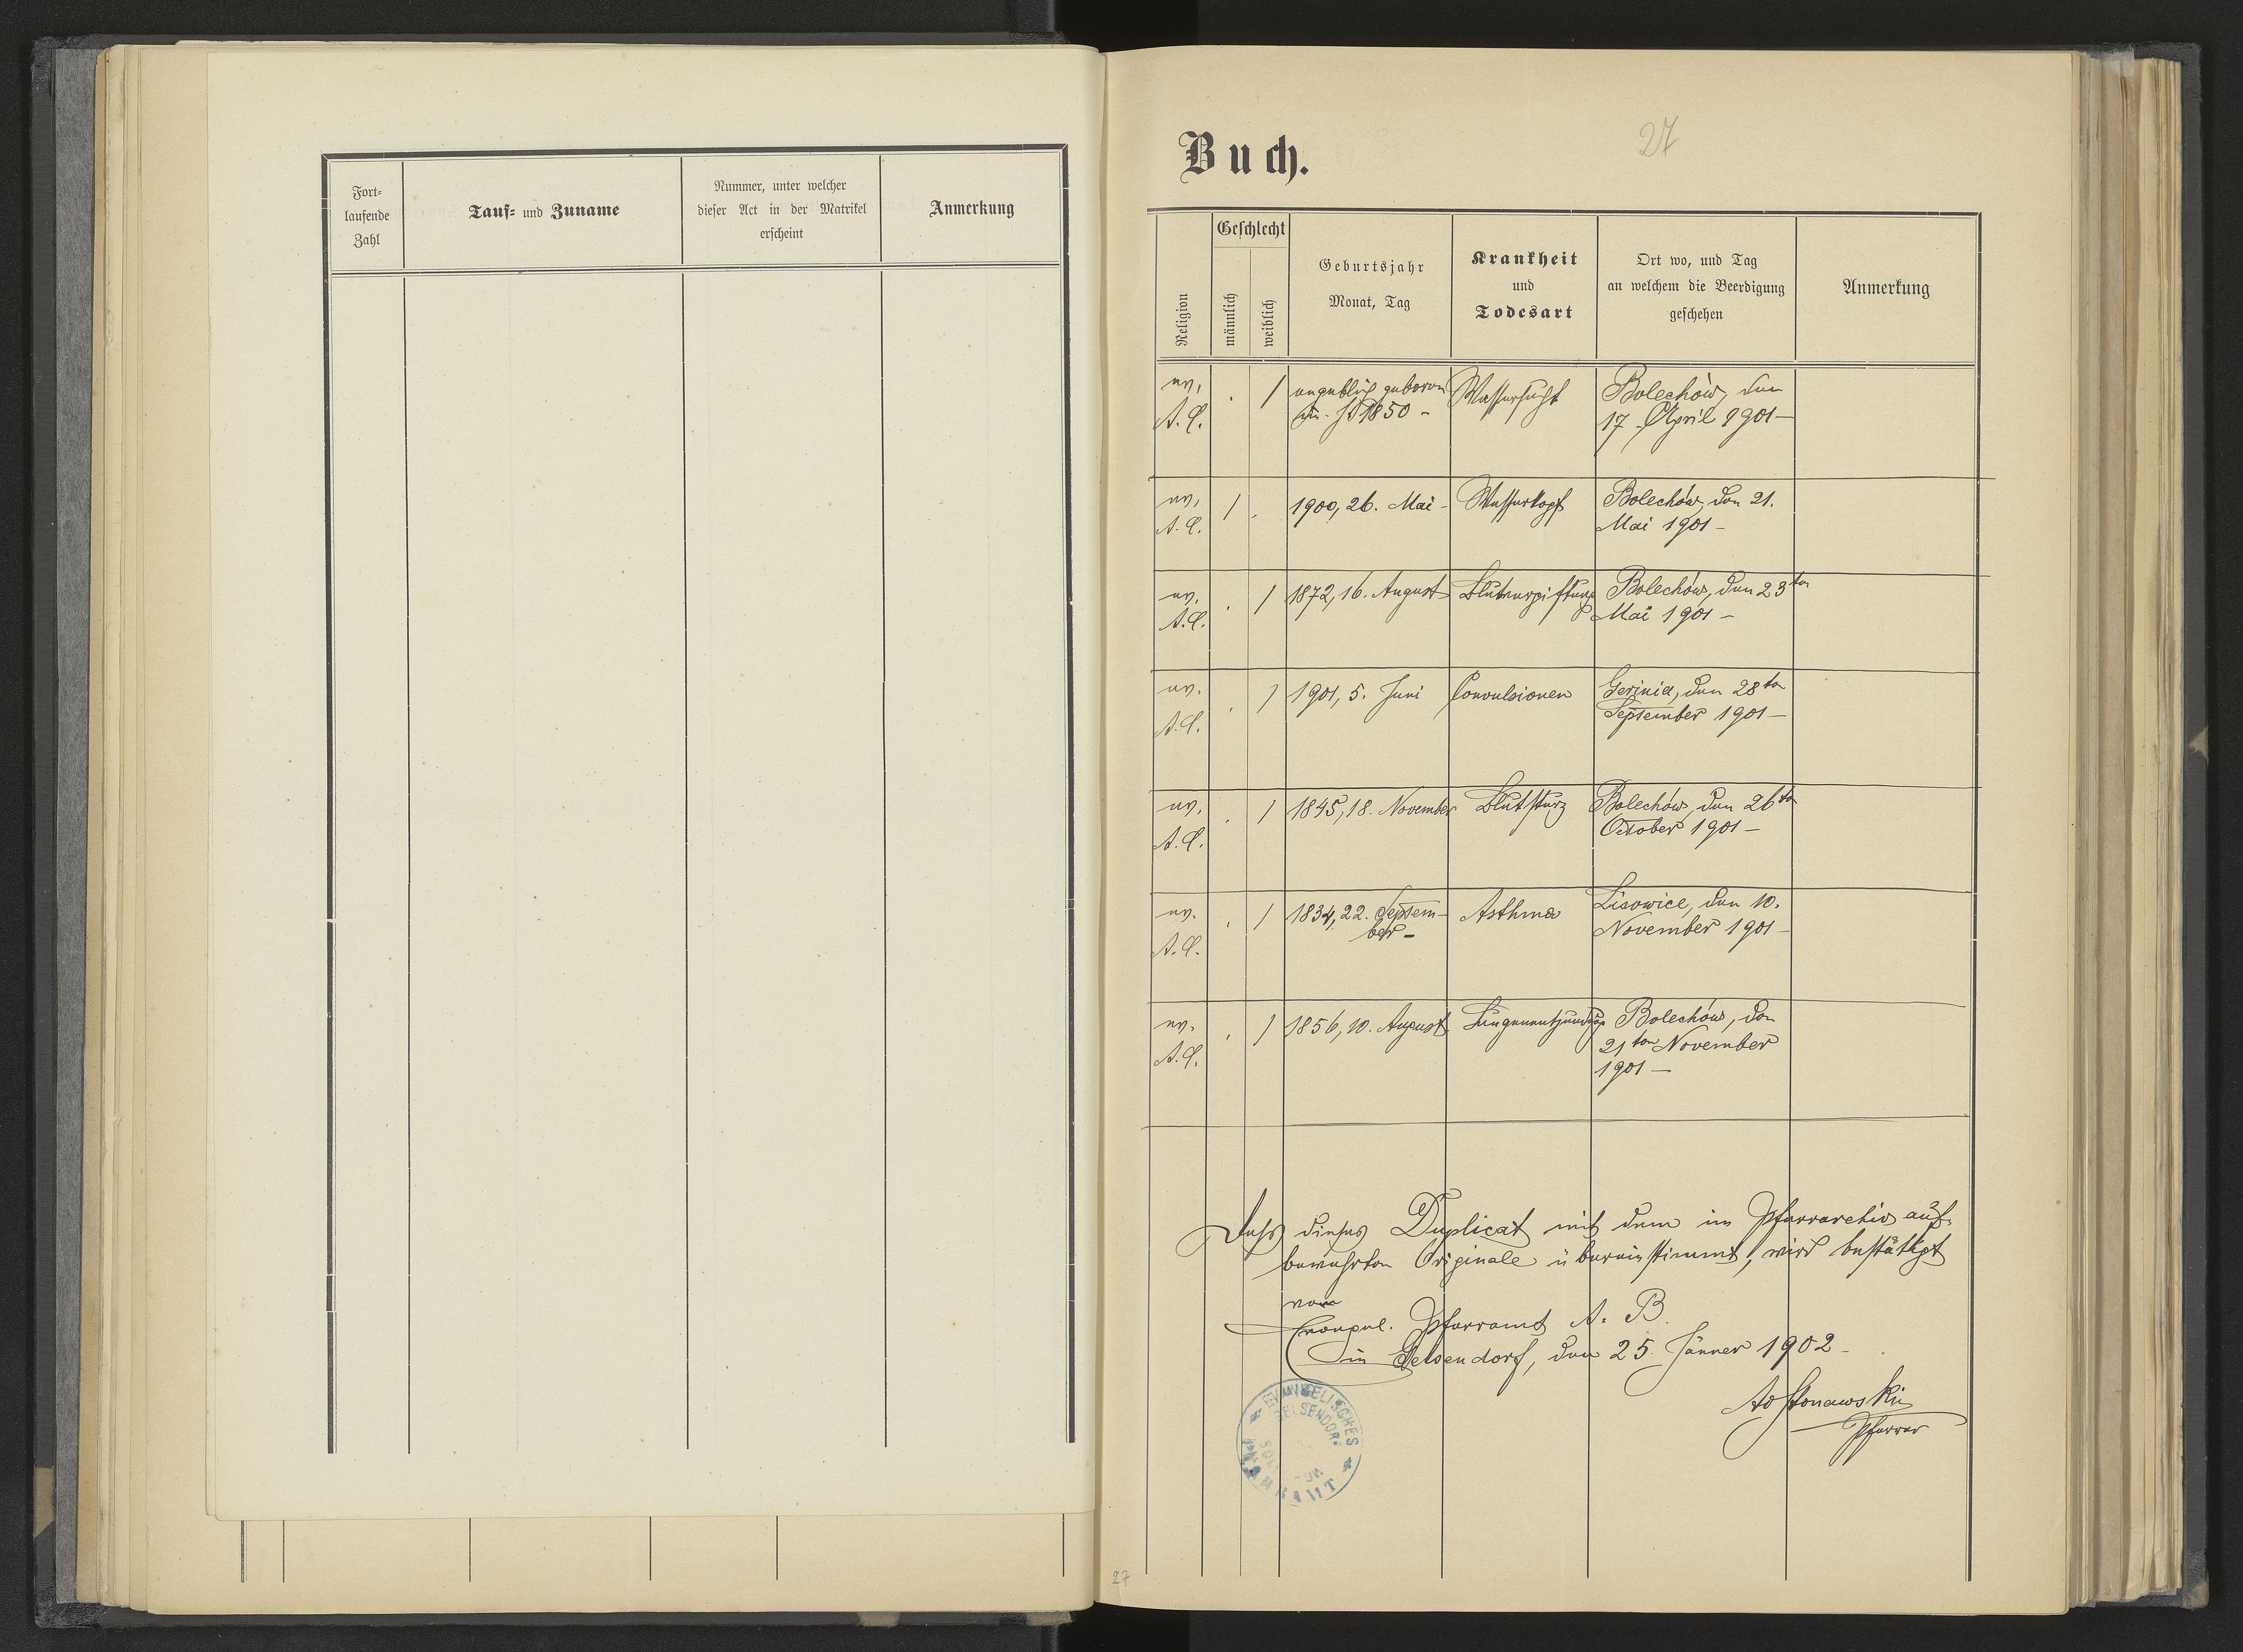 Fort-
laufende
Zahl
Tauf- und Zuname
Nummer, unter welcher
dieser Act in der Matrikel
erscheint
Anmerkung
Buch.
27
Religion
Geschlecht
männlich
weiblich
Geburtsjahr
Monat, Tag
Krankheit
und
Todesart
Ort wo, und Tag
an welchem die Beerdigung
geschehen
Anmerkung
ev. . 1 angeblich geboren Wassersucht Bolechów, den
A.C. im J. 1850 - 17. April 1901 -
ev. 1 . 1900, 26. Mai - Wasserkopf Bolechów, den 21.
A.C. Mai 1901 -
ev. . 1 1872, 16. August Blutvergiftung Bolechów, den 23ten
A.C. Mai 1901 -
ev. . 1 1901, 5. Juni Convulsionen Gerinia, den 28ten
A.C. September 1901 -
ev. . 1 1845, 18. November Blutsturz Bolechów, den 26ten
A.C. October 1901 -
ev. . 1 1834, 22. Septem- Asthma Lisowice, den 10.
A.C. ber - November 1901 -
ev. . 1 1856, 10. August Lungenentzündung Bolechów, den
A.C. 21ten November
1901 -
Dass dieses Duplicat mit dem im Pfarrarchiv auf-
bewahrten Originale übereinstimmt, wird bestätigt
vom
evangel. Pfarramt A. B.
in Gelsendorf, den 25. Jänner 1902 -
Pfarrer
EVANGELISCHES
GELSENDORF
PFARRAMT
27